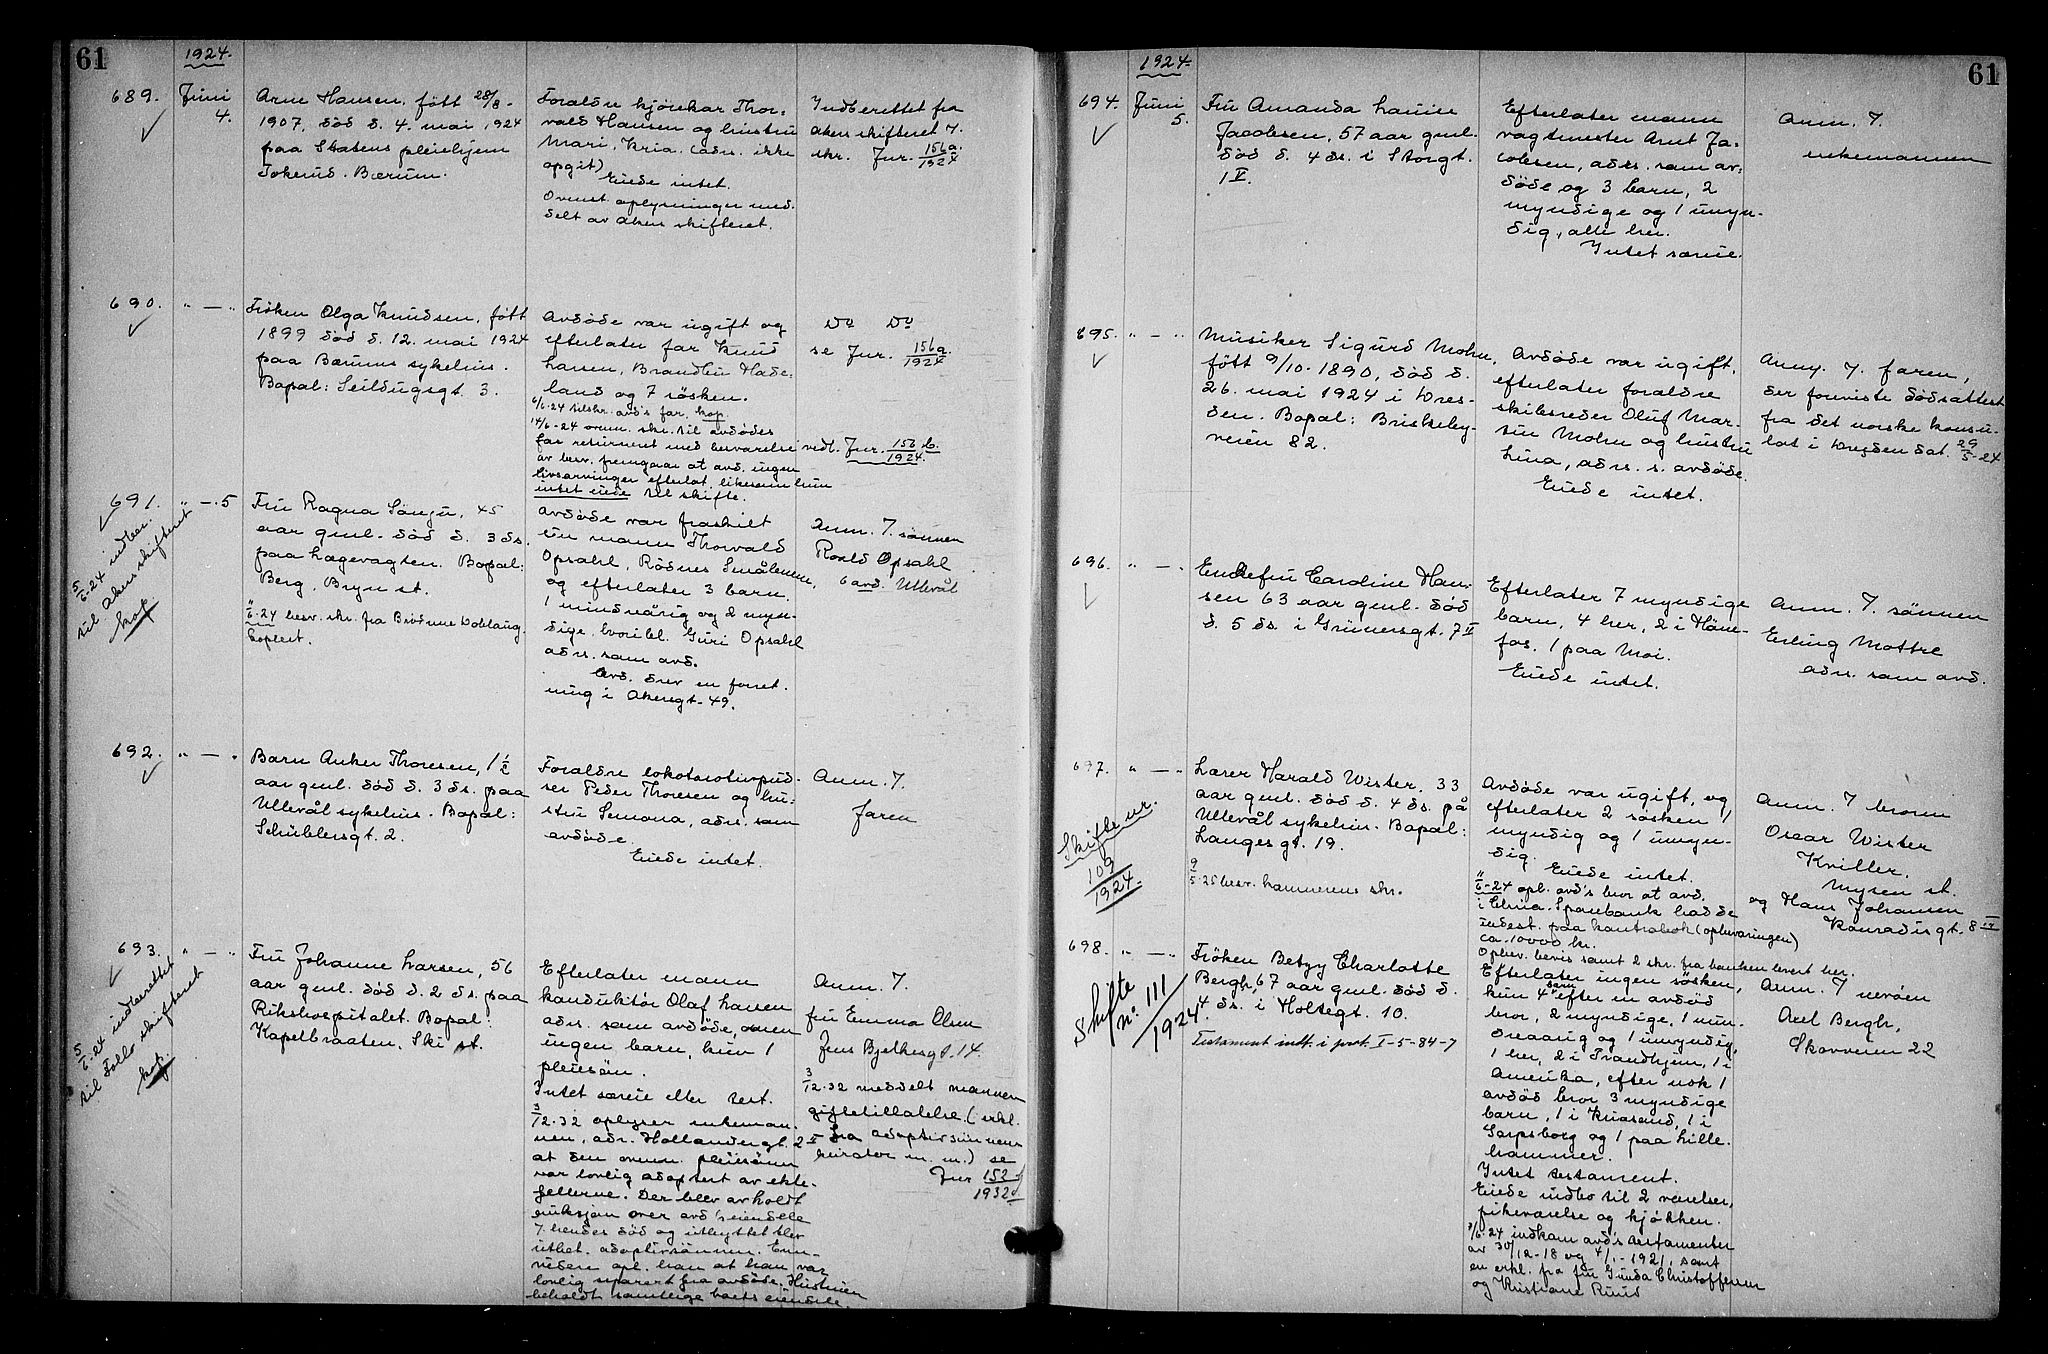 61
1924.
689.
Juni
4.
Arne Hansen, født 28/8-
1907, död d. 4. mai 1924
paa Statens pleiehjem
Tokerud. Bærum.
Foraldre kjörekar Thor-
vald Hansen og hustru
Mari, Kria. (adrs. ikke
opgit)
Eiede intet.
Ovenst. oplysninger med-
delt av Akers skifteret.
Indberettet fra
Akers skifteret 7.
skr. Jnr. 156a/1924
690.
" — "
Fröken Olga Knudsen, født
1899 död d. 12. mai 1924
paa Bærums sykehus.
Bopæl: Seildugsgt. 3.
Avdöde var ugift og
efterlater far Knud
Larsen, Brandbu Hade-
land og 7 sösken.
6/6-24 tilskr. avd's far. kop.
14/6-24 ovenn. skr. til avdödes
far returneret med besvarelse
av besv. fremgaar at avd. ingen
livsarvinger efterlot, likesom hun
intet eiede til skifte.
Do Do
se Jnr. 156a/1924
vedl. Jnr. 156 b./1924.
691.
" — 5
5/6-24 indber.
til Akers skifteret
kop.
Fru Ragna Sönju, 45
aar gml. död d. 3 ds.
paa Lægevagten. Bopæl:
Berg, Bryn st.
11/6-24 besv. skr. fra
kopiert.
Avdöde var fraskilt
fru mann Thorvald
Opsahl, Rödnes Smålenene,
og efterlater 3 barn,
1 mindreårig og 2 myn-
dige, hvoribl. Guri Opsahl
adrs. som avd.
Avd. drev en forret-
ning i Akersgt. 49.
Anm. 7. sönnen
Roald Opsahl
6 avd. Ullevål
692.
" — "
Barn Anker Thoresen, 1 1/2
aar gml. död d. 3 ds. paa
Ullevål sykehus. Bopæl:
Schüblersgt. 2.
Foraldre lokomotivpud-
ser Peder Thoresen og hu-
stru Semona, adrs. som
avdöde.
Eiede intet.
Anm. 7.
faren
693.
" — "
5/6-24 indberettet
til Follo skifteret
kop.
Fru Johanne Larsen, 56
aar gml. död d. 2 ds. paa
Rikshospitalet. Bopæl:
Kapelbraaten, Ski st.
Efterlater mann
konduktör Olaf Larsen
adrs. som avdöde, men
ingen barn, kun 1
pleiesön.
Intet særeie eller test.
3/12-32 oplyser enkeman-
nen, adr. Hollendergt. 2 II
at den ovenn. pleiesönn
var lovlig adoptert av ekte-
fellerne. Der blev avholdt
auksjon over avd's eiendele
7. hendes död og utbyttet blev
utbet. adoptivsönnen. Enn-
videre opl. han at han var
lovlig separert fra avdöde. Hustruen
beholdt samtlige boets eiendele.
Anm. 7.
fru Emma Olsen
Jens Bjelkesgt. 14.
3/12-32 meddelt mannen
giftetillatelse. (erkl.
fra adoptivsönnens
kurator m. m.) se
Jnr 152/1932
1924.
61
694.
Juni
5.
Fru Amanda Lauise
Jacobsen, 57 aar gml.
död d. 4 ds. i Storgt.
1 V.
Efterlater mann
vagtmester Arnt Ja-
cobsen, adrs. som av-
döde og 3 barn, 2
myndige og 1 umyn-
dig, alle her.
Intet særeie.
Anm. 7.
enkemannen
695.
" — "
Musiker Sigurd Mohn,
født 9/10-1890, död d.
26. mai 1924 i Dres-
den. Bopæl: Briskeby-
veien 82.
Avdöde var ugift,
efterlater foraldre
skibsreder Oluf Mar-
tin Mohn og hustru
Lina, adrs. s. avdöde.
Eiede intet.
Anm. 7. faren,
der foreviste dödsattest
fra det norske konsu-
lat i Dresden dat. 29/5-24
696.
" — "
Enkefru Caroline Han-
sen 63 aar gml. död
d. 5 ds. i Grünersgt. 7 II
Efterlater 7 myndige
barn, 4 her, 2 i Höne-
fos, 1 paa Moi.
Eiede intet.
Anm. 7. sönnen
Erling Mottre
adrs. som avd.
697.
" — "
Skifte nr.
109/1924.
Lærer Harald Wister, 33
aar gml. död d. 4 ds. på
Ullevål sykehus. Bopæl:
Langes gt. 19.
9/5-25 besv. kemnerens skr.
Avdöde var ugift, og
efterlater 2 sösken 1
myndig og 1 umyn-
dig.
Eiede intet.
11/6-24 opl. avd's bror at avd.
i Chria. Sparebank hadde
indest. paa kontrabok (opbevaringen)
ca. 10000 kr.
Opbev. bevis samt 2 skr. fra banken levert her.
Anm. 7 broren
Oscar Wister
Kviller.
Mysen st.
og Hans Johansen
Konradisgt. 8 IV
698.
" — "
Skifte
nr. 111/1924.
Fröken Betzy Charlotte
Bergh, 67 aar gml. död d.
4 ds. i Holtegt. 10.
Testament indt. i prot. I-5-84-7
Efterlater ingen sösken,
kun 4 barn efter en avdöd
bror, 2 myndige, 1 min-
dreaarig og 1 umyndig,
1 her, 2 i Trondhjem, 1 i
Amerika, efter nok 1
avdöd bror 3 myndige
barn, 1 i Krsand, 1 i
Sarpsborg og 1 paa Lille-
hammer.
Intet testament.
Eiede indbo til 2 værelser,
pikeværelse og kjökken.
7/6-24 indkom avd's testamenter
av 30/12-18 og 4/1-1921, samt
en erkl. fra fru Gunda Christoffersen
og Kristiane Ruud
Anm. 7 nevöen
Axel Bergh,
Skovveien 22